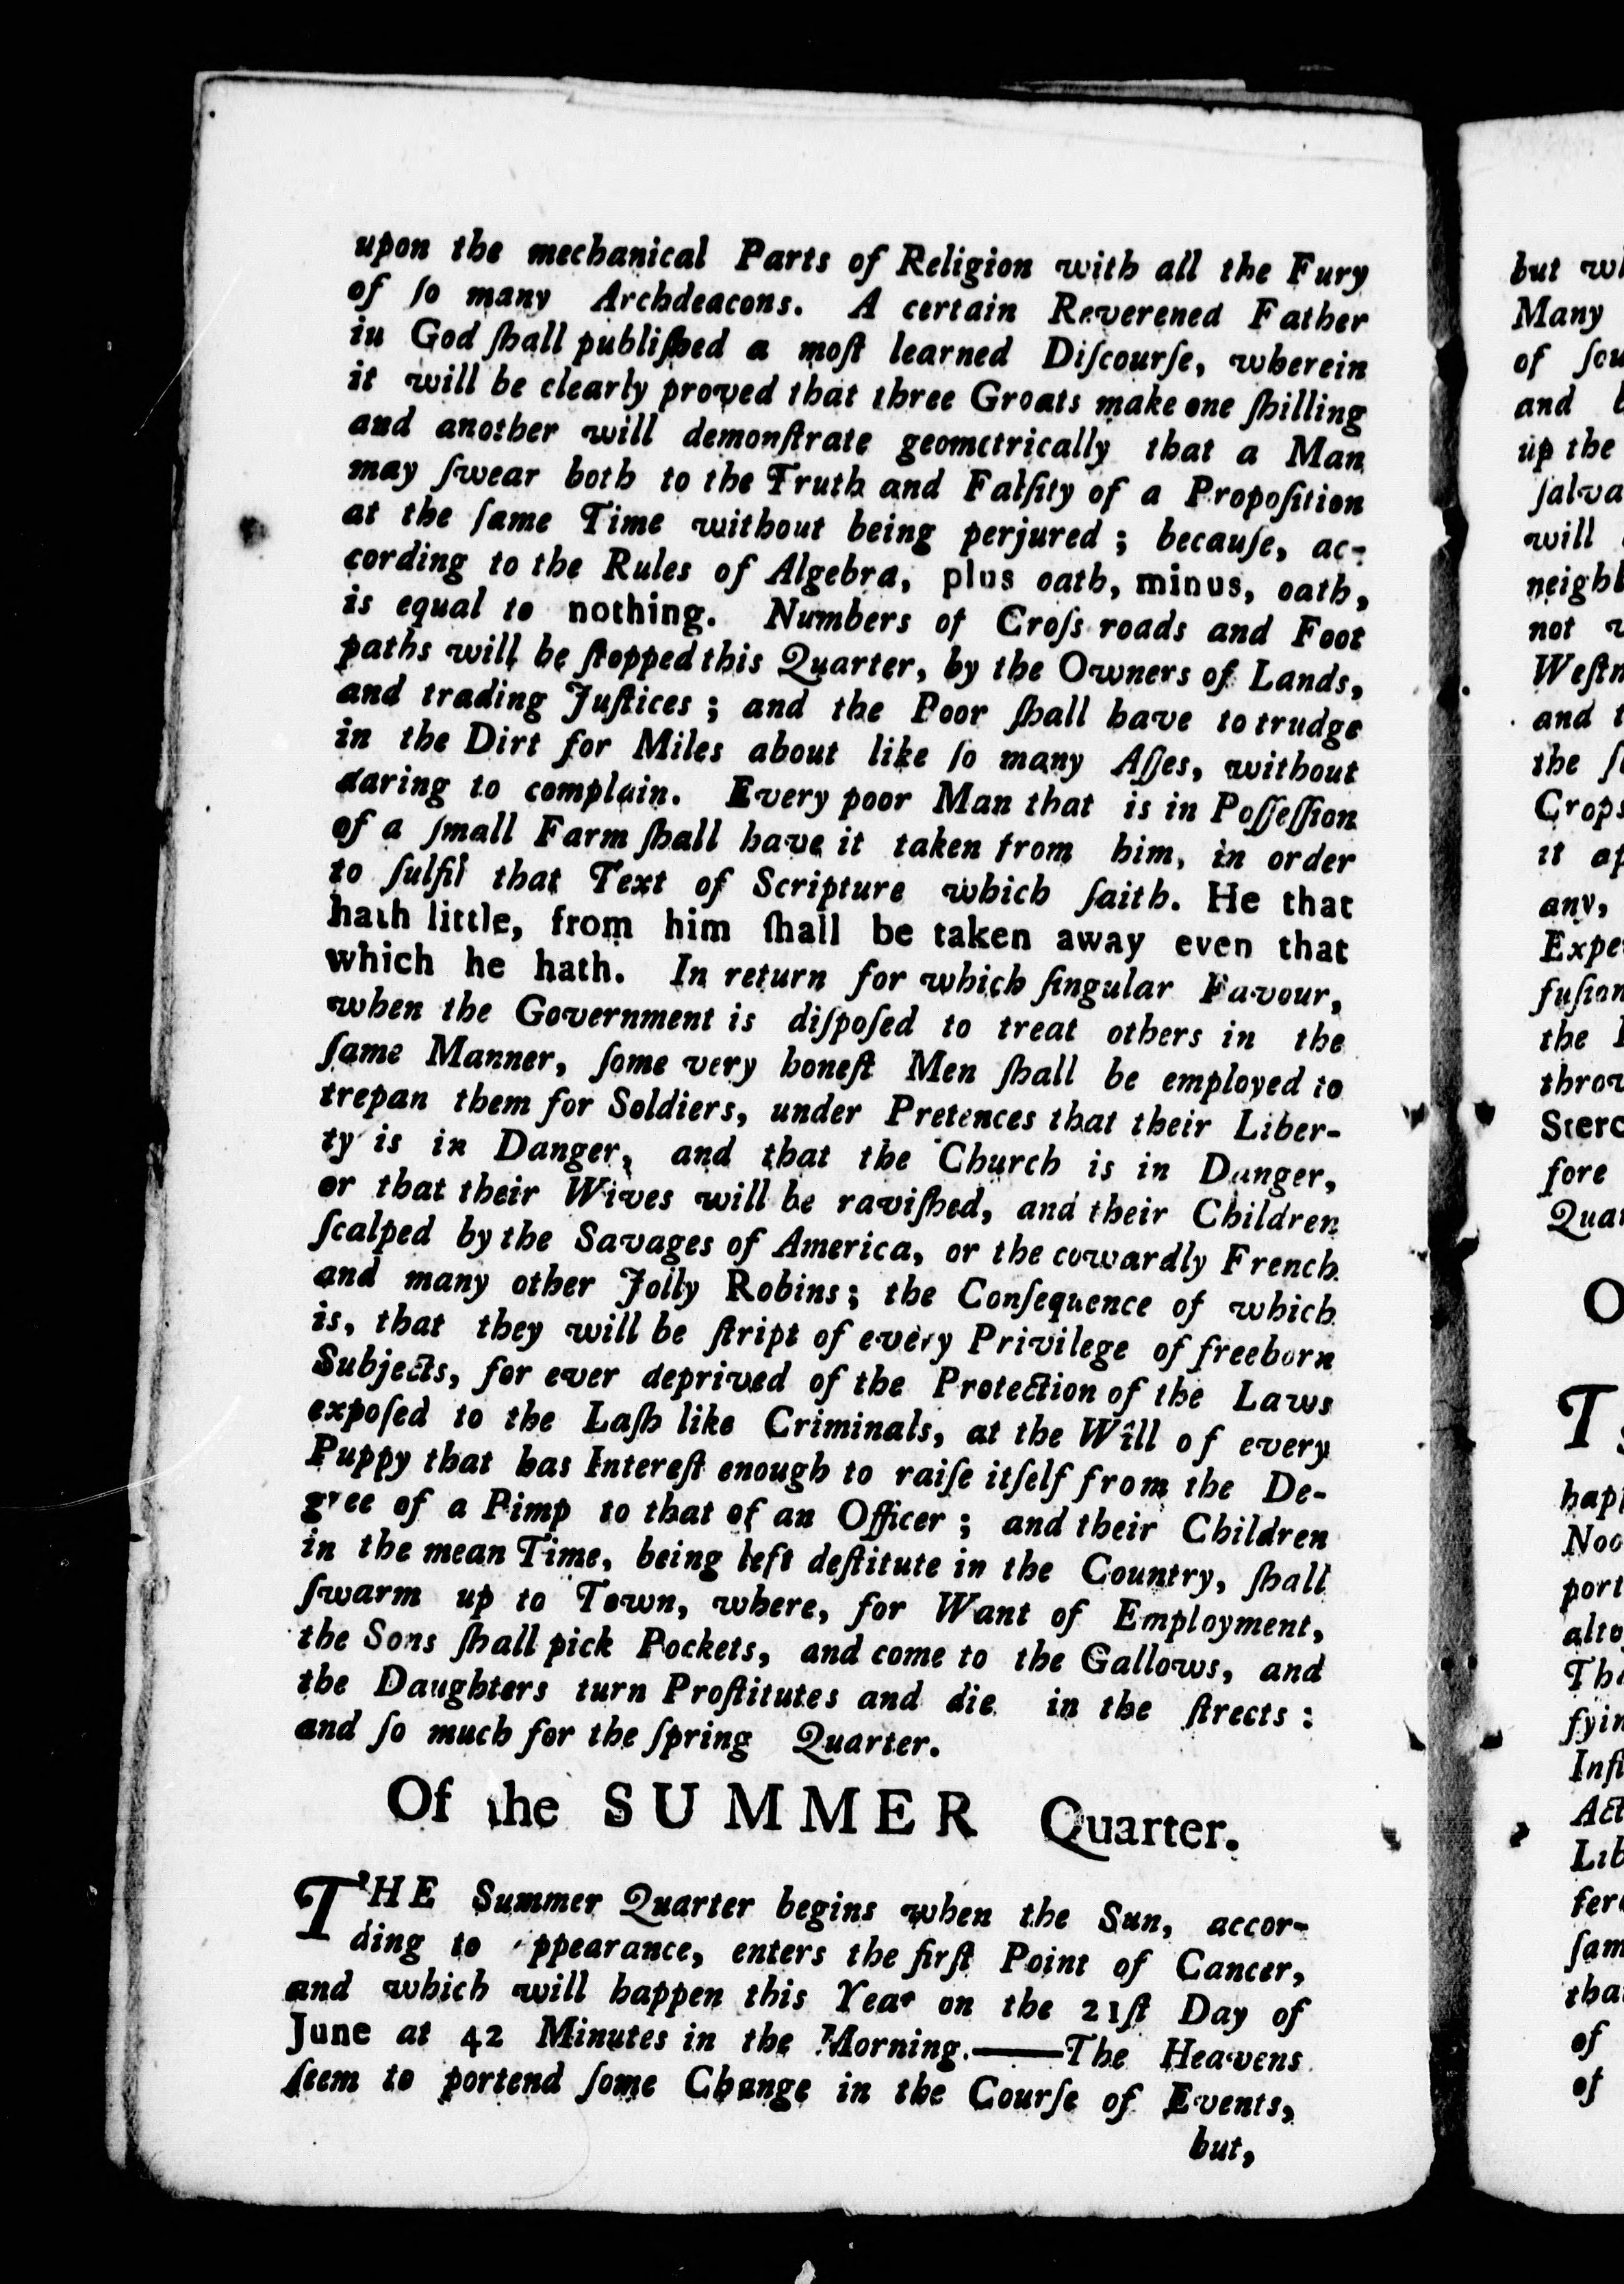 upon the mechanical Parts of Religion with all the Fury
of ſo many Archdeacons. A certain Reverened Father
iu God ſhall publiſhed a moſt learned Diſcourſe, wherein
it will be clearly proved that three Groats make one ſhilling
and another will demonſtrate geometrically that a Man
may ſwear both to the Truth and Falſity of a Propoſition
at the ſame Time without being perjured ; becauſe, ac-
cording to the Rules of Algebra, plus oath, minus, oath,
is equal to nothing. Numbers of Croſs roads and Foot
paths will be ſtopped this Quarter, by the Owners of Lands,
and trading Juſtices ; and the Poor ſhall have to trudge
in the Dirt for Miles about like ſo many Aſſes, without
daring to complain. Every poor Man that is in Poſſeſſion
of a ſmall Farm ſhall have it taken from him, in order
to fulfil that Text of Scripture which ſaith. He that
hath little, from him ſhall be taken away even that
which he hath. In return for which ſingular Favour,
when the Government is diſpoſed to treat others in the
ſame Manner, ſome very honeſt Men ſhall be employed to
trepan them for Soldiers, under Pretences that their Liber-
ty is in Danger, and that the Church is in Danger,
or that their Wives will be raviſhed, and their Children
ſcalped by the Savages of America, or the cowardly French
and many other Jolly Robins ; the Conſequence of which
is, that they will be ſtript of every Privilege of freeborn
Subjects, for ever deprived of the Protection of the Laws
expoſed to the Laſh like Criminals, at the Will of every
Puppy that has Intereſt enough to raiſe itſelf from the De-
gree of a Pimp to that of an Officer ; and their Children
in the mean Time, being left deſtitute in the Country, ſhall
ſwarm up to Town, where, for Want of Employment,
the Sons ſhall pick Pockets, and come to the Gallows, and
the Daughters turn Proſtitutes and die in the ſtreets :
and ſo much for the ſpring Quarter.
Of the SUMMER Quarter.
THE Summer Quarter begins when the Sun, accor-
ding to ppearance, enters the firſt Point of Cancer,
and which will happen this Year on the 21ſt Day of
June at 42 Minutes in the Morning.——The Heavens
ſeem to portend ſome Change in the Courſe of Events,
but,
but
Many
of
and
up the
will
not
and
the
Crops
it
any,
the
fore
O
T
of
of